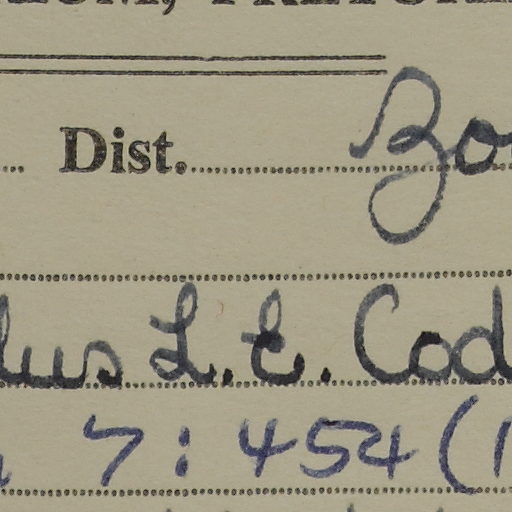 Dist. Zo
lus L.E. Cod
7: 454 (1